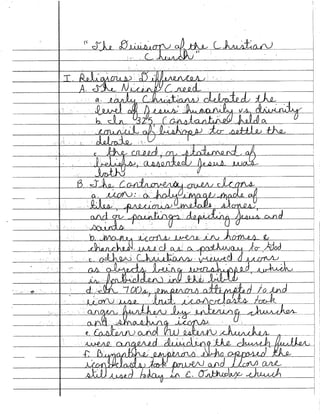 "The Division of the Christian
Church"
I. Religious Differences
A. The Nicene Creed
a. early Christians debated the
level of Jesus' humanity vs. divinity
b. In 325, Constantine held a
council of bishops to settle the
debate
c. the creed, or statement of
beliefs, asserted Jesus was
both
B. The Controversy over Icons
a. icon: a holy image made of
tiles, precious metals, stones,
and or paintings depicting Jesus and
saints
b. many icons were in homes &
churches used as a pathway to God
c. other Christians viewed icons
as objects being worshipped, which
is forbidden in the bible
d. In 700s, emperors attempted to end
icon use, but iconoclasts took
anger further by entering churches
and smashing icons
e. Eastern and Western churches
were angered dividing the church further
f. Byzantine emperors who opposed the
iconoclasts took power and icons are
still used today in E. Orthodox church